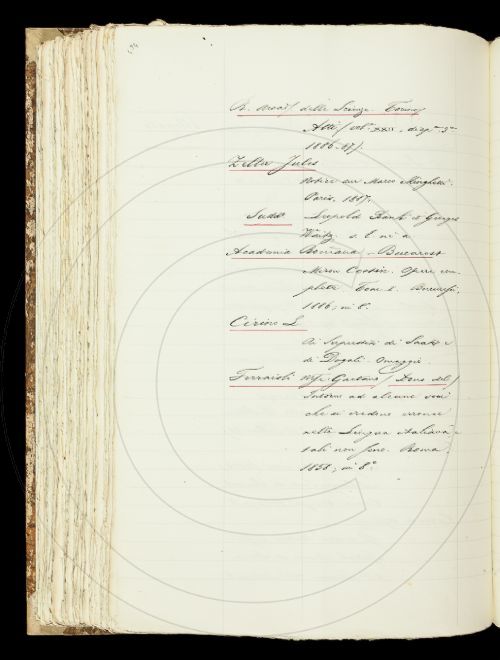 R. Accad. delle Scienze. Torino
Atti (vol. XXII. disp.
1886-87).
Zeller Jules
Notice sur Marco Minghetti.
Paris, 1887.
Sudd.
Leopold Ranke et Georges
Waitz. s. l. ni a
Academia Romana - Bucarest
Miron Costin. Opere com-
plete. Tom I. Bucuresci,
1886, in 8°.
Cirino L.
Ai Superstiti di Saati e
di Dogali. Omaggio.
Ferraioli Gaetano (Dono del)
Intorno ad alcune voci
che si credono erronee
nella Lingua italiana e
tali non sono. Roma,
1858, in 8°.